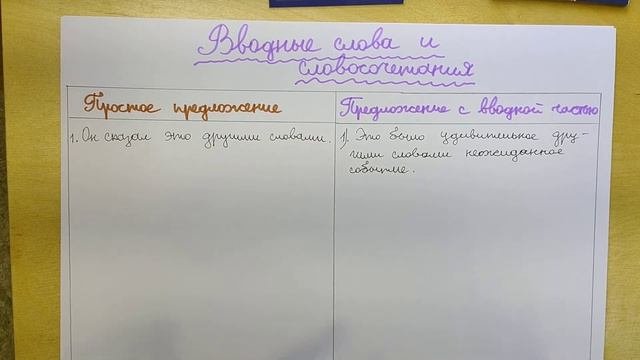 Вводные слова и
словосочетания
Простое предложение
Предложение с вводной частью
1. Он сказал это другими словами.
1) Это было удивительное дру-
гими словами неожиданное
событие.